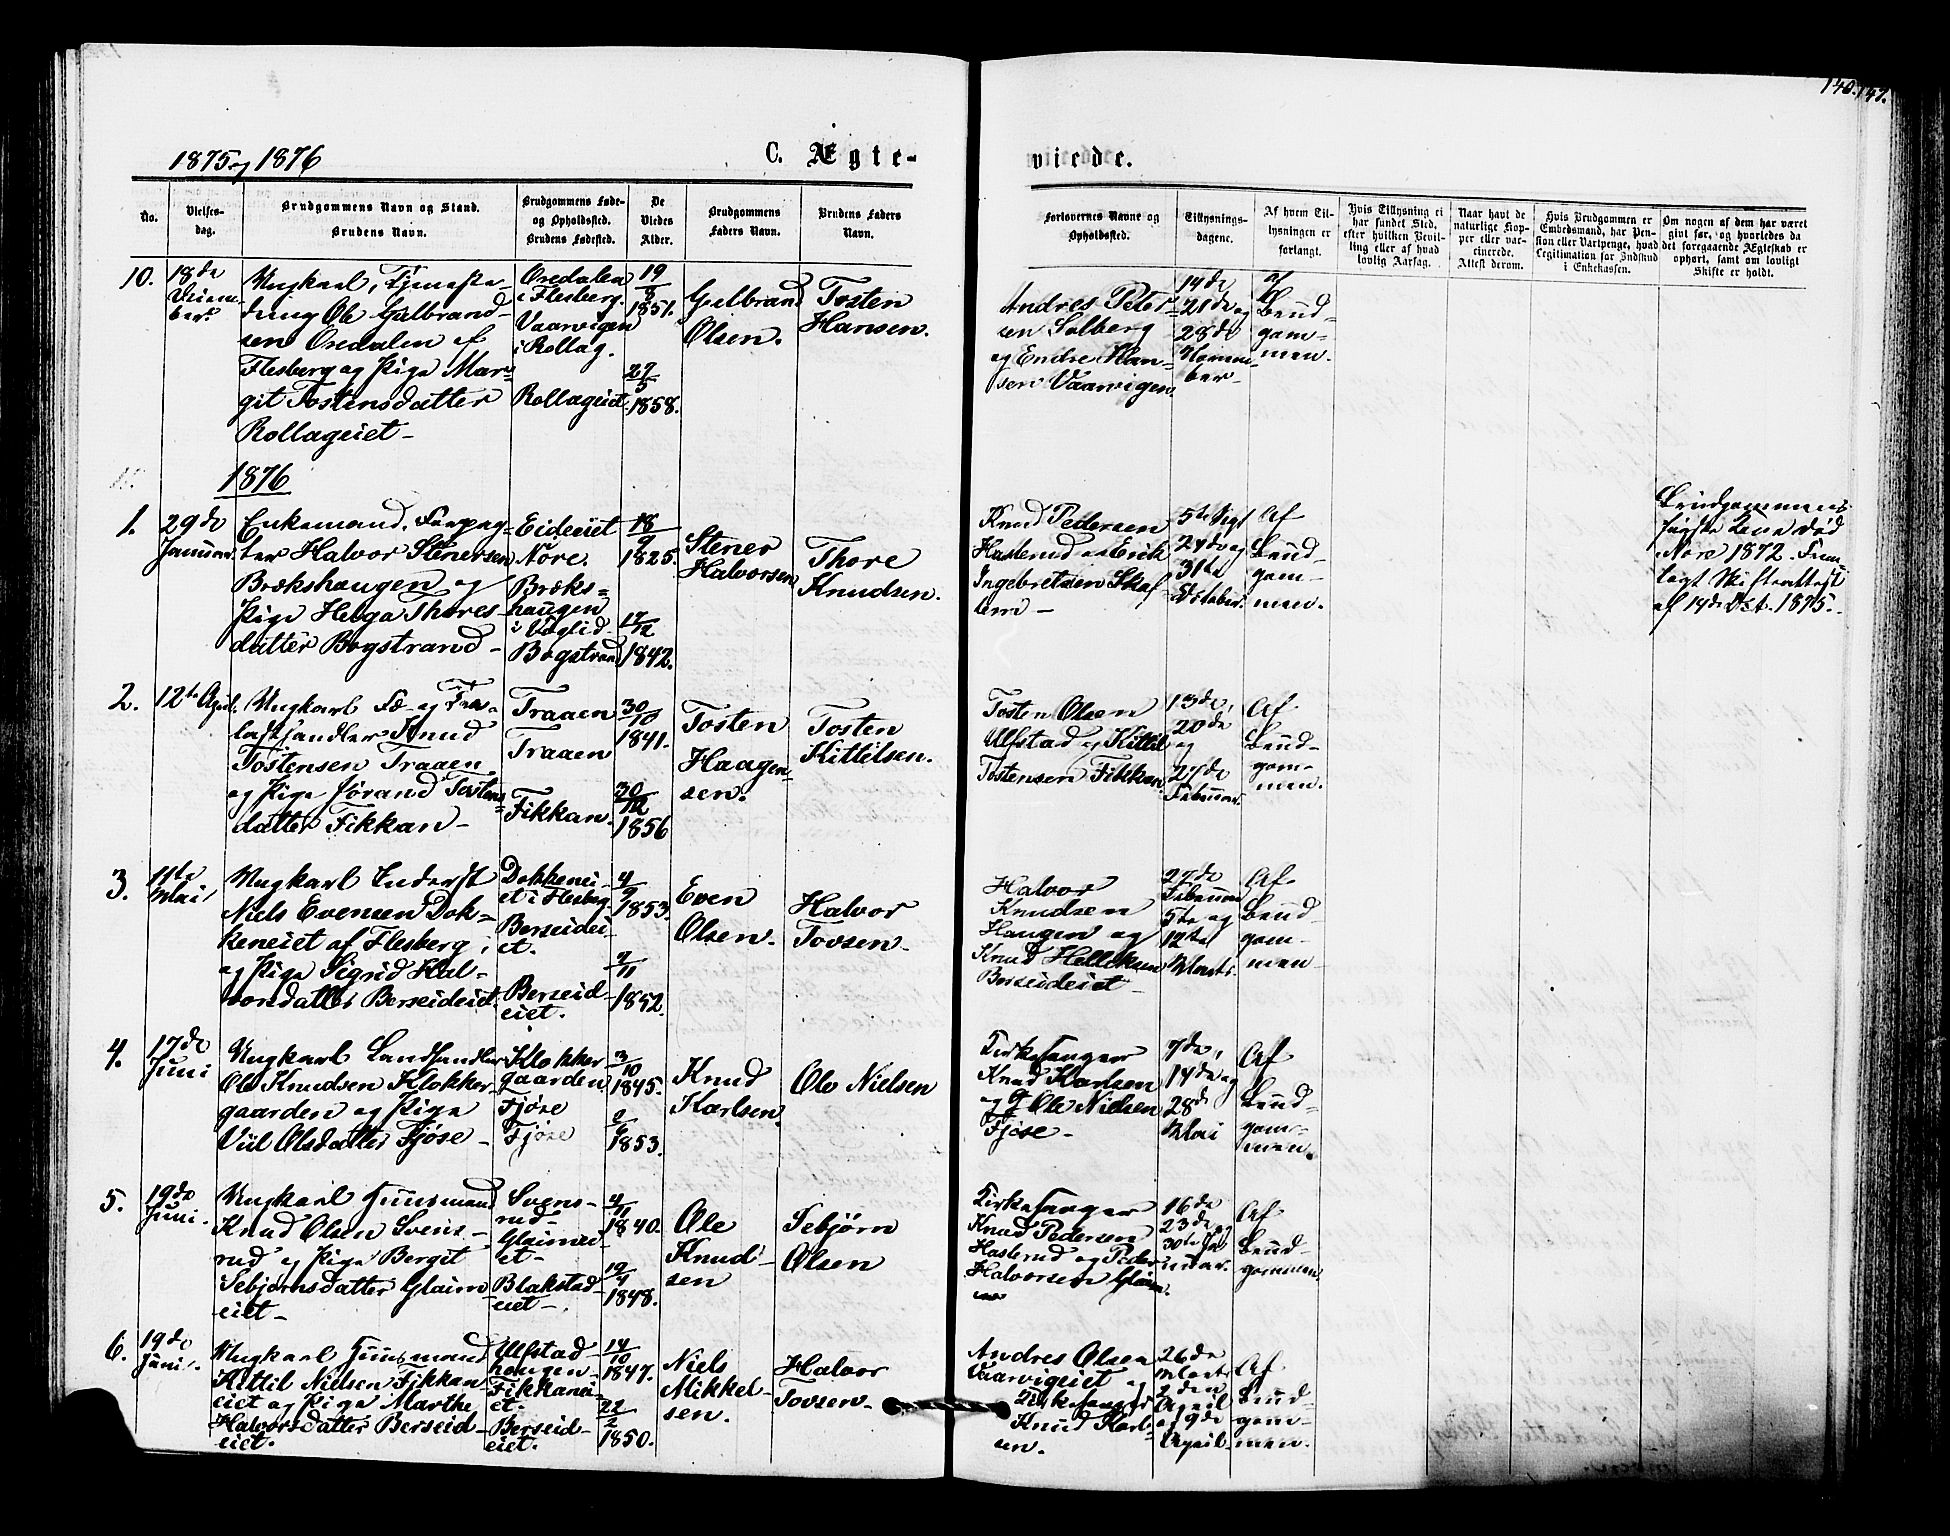 140. 147.
1875 og 1876
C. Ægte-
viede.
No.
Vielses-
dag.
Brudgommens Navn og Stand.
Brudens Navn.
Brudgommens Føde-
og Opholdssted.
Brudens Fødested.
De
Viedes
Alder.
Brudgommens
Faders Navn.
Brudens Faders
Navn.
Forlovernes Navne og
Opholdssted.
Tillysnings-
dagene.
Af hvem Til-
lysningen er
forlangt.
Hvis Tillysning ei
har fundet Sted,
efter hvilken Bevil-
ling eller af hvad
lovlig Aarsag.
Naar havt de
naturlige Kop-
per eller vac-
cinerede.
Attest derom.
Hvis Brudgommen er
Embedsmand, har Pen-
sion eller Vartpenge, hvad
Legitimation for Indskud
i Enkekassen.
Om nogen af dem har været
givt før, og hvorledes da
det foregaaende Ægteskab er
ophørt, samt om lovligt
Skifte er holdt.
10.
18de
Decem-
ber.
Ungkarl, Tjeneste-
dreng Ole Gulbrand-
sen Oredalen af
Flesberg og Pige Mar-
git Tostensdatter
Rollageiet -
Oredalen
i Flesberg.
Vaarvigen
i Rollag.
Rollageiet.
19/8
1851.
27/5
1858.
Gulbrand
Olsen.
Tosten
Hansen.
Andres Peter-
sen Solberg
og Endre Han-
sen Vaarvigen.
14de
21de og
28de
Novem-
ber -
af
Brud-
gom-
men.
1876
1.
29de
Januar.
Enkemand, Forpag-
ter Halvor Stenersen
Brækshaugen og
Pige Helga Thores-
datter Bogstrand -
Eideiet
Nore.
Bræks-
haugen
i Væglid.
Bogstrand
18/9
1825.
17/12
1842.
Stener
Halvorsen
Thore
Knudsen.
Knud Pedersen
Haslerud og Erik
Ingebretsen Skaf-
tem -
24de og
31te
October.
Af
Brud-
gom-
men.
Brudgommens
første Kone død
Nore 1872. Frem-
lagt Skifteattest
af 14de Oct. 1875.
2.
12te April.
Ungkarl Fæ- og Tra-
lasthandler Knud
Tostensen Traaen
og Pige Jørand Tostens-
datter Fikkan -
Traaen
Traaen
Fikkan.
30/10
1841.
30/12
1856
Tosten
Haagen-
sen.
Tosten
Kittilsen.
Tosten Olsen
Ulfstad og Kittil
Tostensen Fikkan.
13de,
20de
og
27de
Februar.
Af
Brud-
gom-
men.
3.
11te
Mai
Ungkarl Inderst
Niels Evensen Dok-
keneiet af Flesberg,
og Pige Sigrid Hal-
vorsdatter Berseideiet.
Dokkenei-
et i Flesberg
Berseidei-
et.
Berseid-
eiet.
4/9
1853.
7/11
1852.
Even
Olsen.
Halvor
Tovsen -
Halvor
Knudsen
Haugen og
Knud Helleksen
Berseideiet -
27de
Februar
5te og
12te
Marts
Af
Brud-
gom-
men -
4.
17de
Juni
Ungkarl Landhandler
Ole Knudsen Klokker-
gaarden og Pige
Viil Olsdatter Fjøse -
Klokker
gaarden
Fjøse
Fjøse
3/10
1845.
2/6
1853.
Knud
Karlsen.
Ole Nielsen
Kirkesanger
Knud Karlsen
og Ole Nielsen
Fjøse -
7de,
14de og
28de
Mai
Af
Brud-
gom-
men.
5.
19de
Juni.
Ungkarl Huusmand
Knud Olsen Svens-
rud og Pige Bergit
Sebjørnsdatter Glaim-
eiet -
Svens-
rud -
Glaimei-
et -
Blakstad-
eiet -
4/11
1840.
19/4
1848.
Ole
Knud-
sen
Sebjørn
Olsen
Kirkesanger
Knud Pedersen
Haslerud og Peder
Halvorsen Glaim.
16de
23de og
30te Ja-
nuar.
Af
Brud-
gommen.
6.
19de
Juni.
Ungkarl Huusmand
Kittil Nielsen Fikkan-
eiet og Pige Marthe
Halvorsdatter Berseid-
eiet.
Ulfstad-
haugen -
Fikkanei-
et.
Berseid-
eiet.
14/10
1847.
22/2
1850.
Niels
Mikkel-
sen.
Halvor
Tovsen -
Andres Olsen
Vaarvigeiet og
Kirkesanger
Knud Karl-
sen.
26de
Marts
2den
April
og 9de
April.
Af
Brud-
gom-
men.